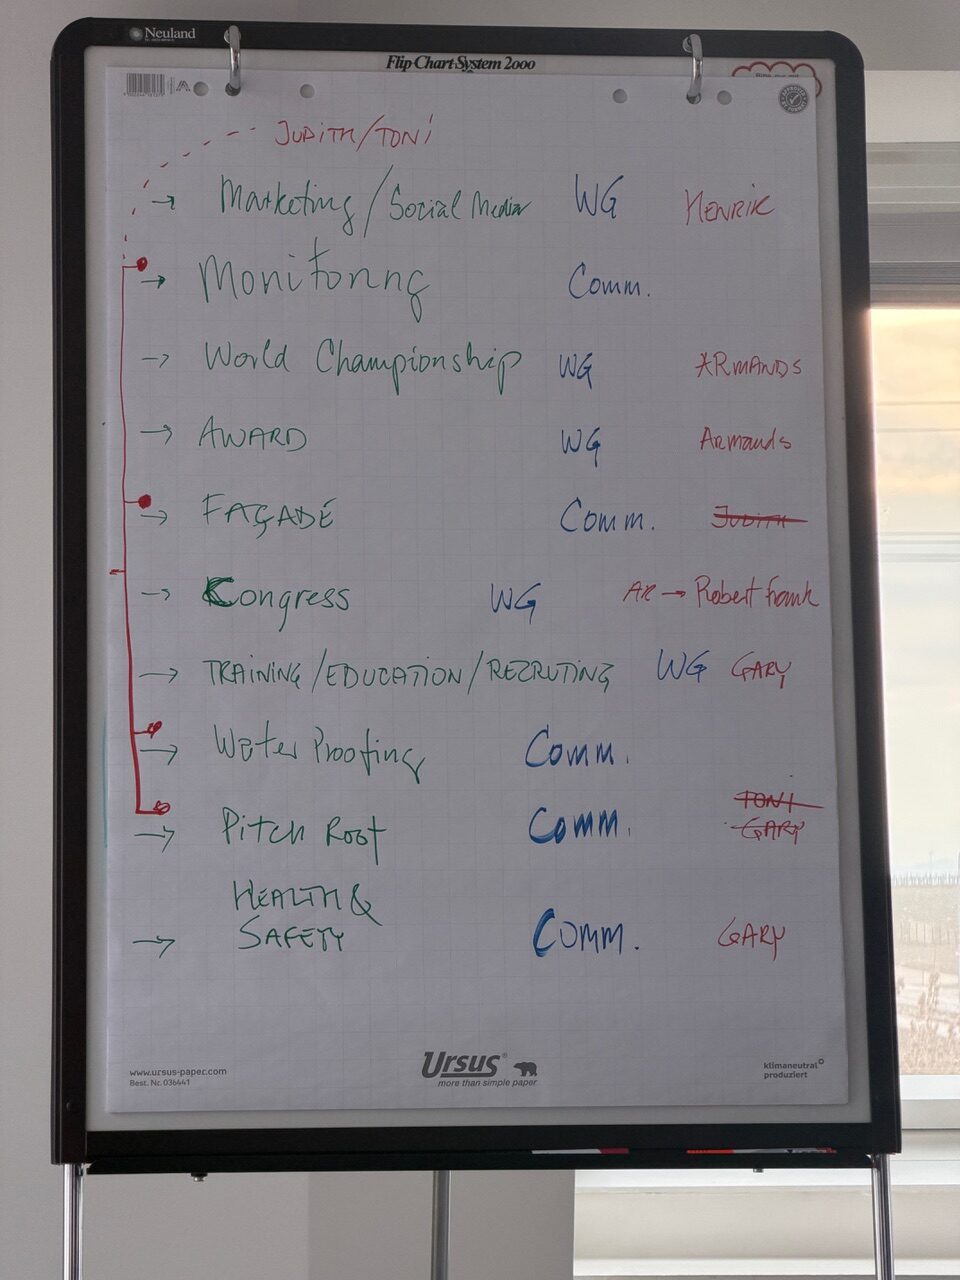 Neuland
Flip Chart System 2000
JUDITH/TONI
→ Marketing/Social Media WG HENRIK
→ Monitoring Comm.
→ World Championship WG ARMANDS
→ AWARD WG Armands
→ FAÇADÉ Comm. JUDITH
→ Congress WG AR → Robert Frank
→ TRAINING/EDUCATION/RECRUTING WG GARY
→ Water Proofing Comm.
TONI
→ Pitch Roof Comm. GARY
HEALTH &
→ SAFETY Comm. GARY
www.ursus-paper.com
Best. Nr. 036441
Ursus®
more than simple paper
klimaneutral
produziert